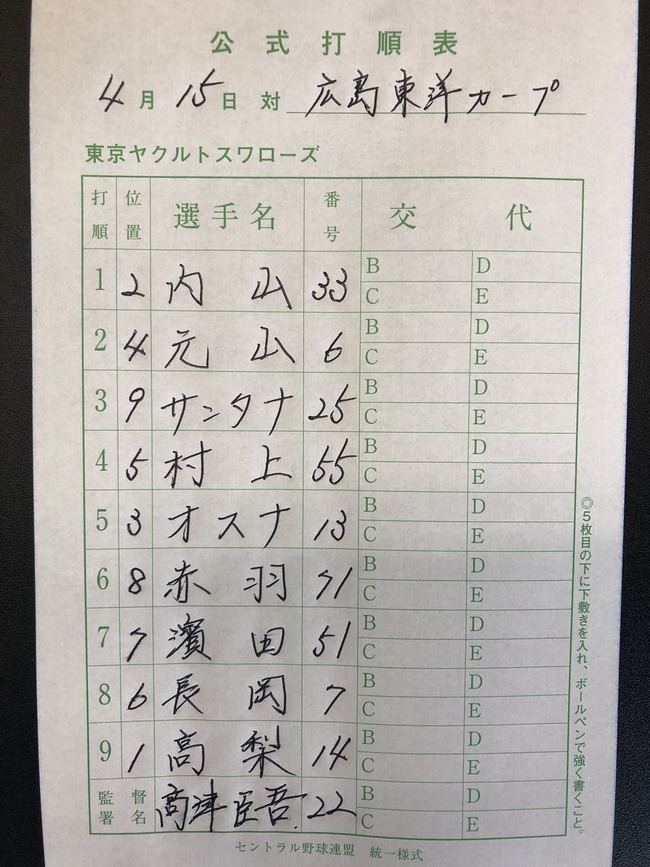 公式打順表
4月15日 対 広島東洋カープ
東京ヤクルトスワローズ
打順 位置 選手名 番号 交代
1 2 内山 33 B D C E
2 4 元山 6 B D C E
3 9 サンタナ 25 B D C E
4 5 村上 55 B D C E
5 3 オスナ 13 B D C E
6 8 赤羽 71 B D C E
7 7 濱田 51 B D C E
8 6 長岡 7 B D C E
9 1 高梨 14 B D C E
監督署名 高津臣吾 22 B D C E
◎5枚目の下に下敷きを入れ、ボールペンで強く書くこと。
セントラル野球連盟 統一様式